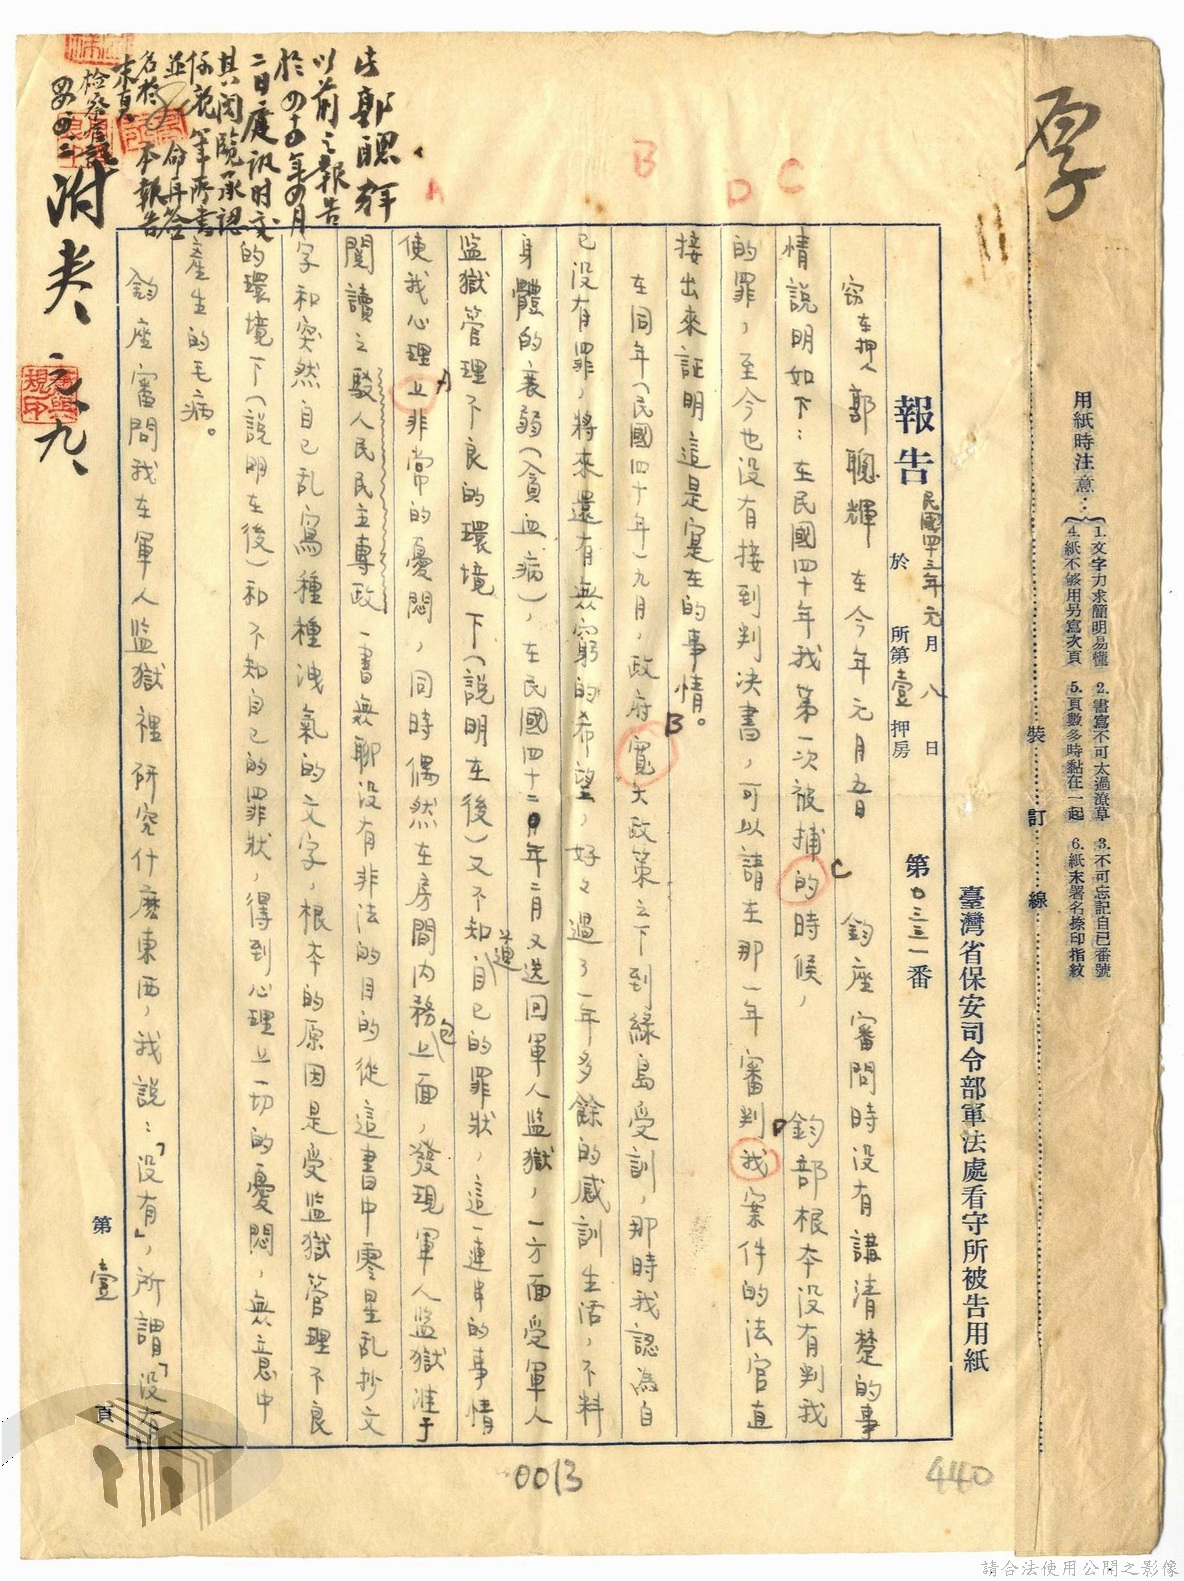 原
用紙時注意：
1.文字力求簡明易懂 2.書寫不可太過潦草 3.不可忘記自己番號
4.紙不够用另寫次頁 5.頁數多時黏在一起 6.紙末署名捺印指紋
裝 訂 線
臺灣省保安司令部軍法處看守所被告用紙
報告 民國四十三年元月八日 於 所第壹押房 第0三三一番
竊在押人郭聰輝在今年元月五日 鈞座審問時没有講清楚的事
情說明如下：在民國四十年我第一次被捕的時候， 鈞部根本没有判我
的罪，至今也没有接到判决書，可以請在那一年審判我案件的法官直
接出來証明這是实在的事情。
在同年（民國四十年）九月，政府寬大政策之下到綠島受訓，那時我認為自
己没有罪，將來還有無窮的希望，好好過了一年多餘的感訓生活，不料
身體的衰弱（貧血病），在民國四十二年二月又送回軍人監獄，一方面受軍人
監獄管理不良的環境下（說明在後）又不知道自己的罪狀，這一連串的事情
使我心理上非常的憂悶，同時偶然在房間内務包上面，發現軍人監獄准于
閱讀之駁人民民主專政一書無聊没有非法的目的從這書中零星乱抄文
字和突然自己乱寫種種洩氣的文字，根本的原因是受監獄管理不良
的環境下（說明在後）和不知自己的罪狀，得到心理上一切的憂悶，無意中
產生的毛病。
鈞座審問我在軍人監獄裡研究什麽東西，我説：「没有」，所謂「没有
第壹頁
法郭聰輝
以前之報告
於四十四年四月
二日庭訊时交
其閱覽承認
係親筆所書
並命再簽
名於本報告
末頁
檢察官記
四四二
附卷、元、九、
A
B
D
C
A
B
C
D
0013
440
請合法使用公開之影像